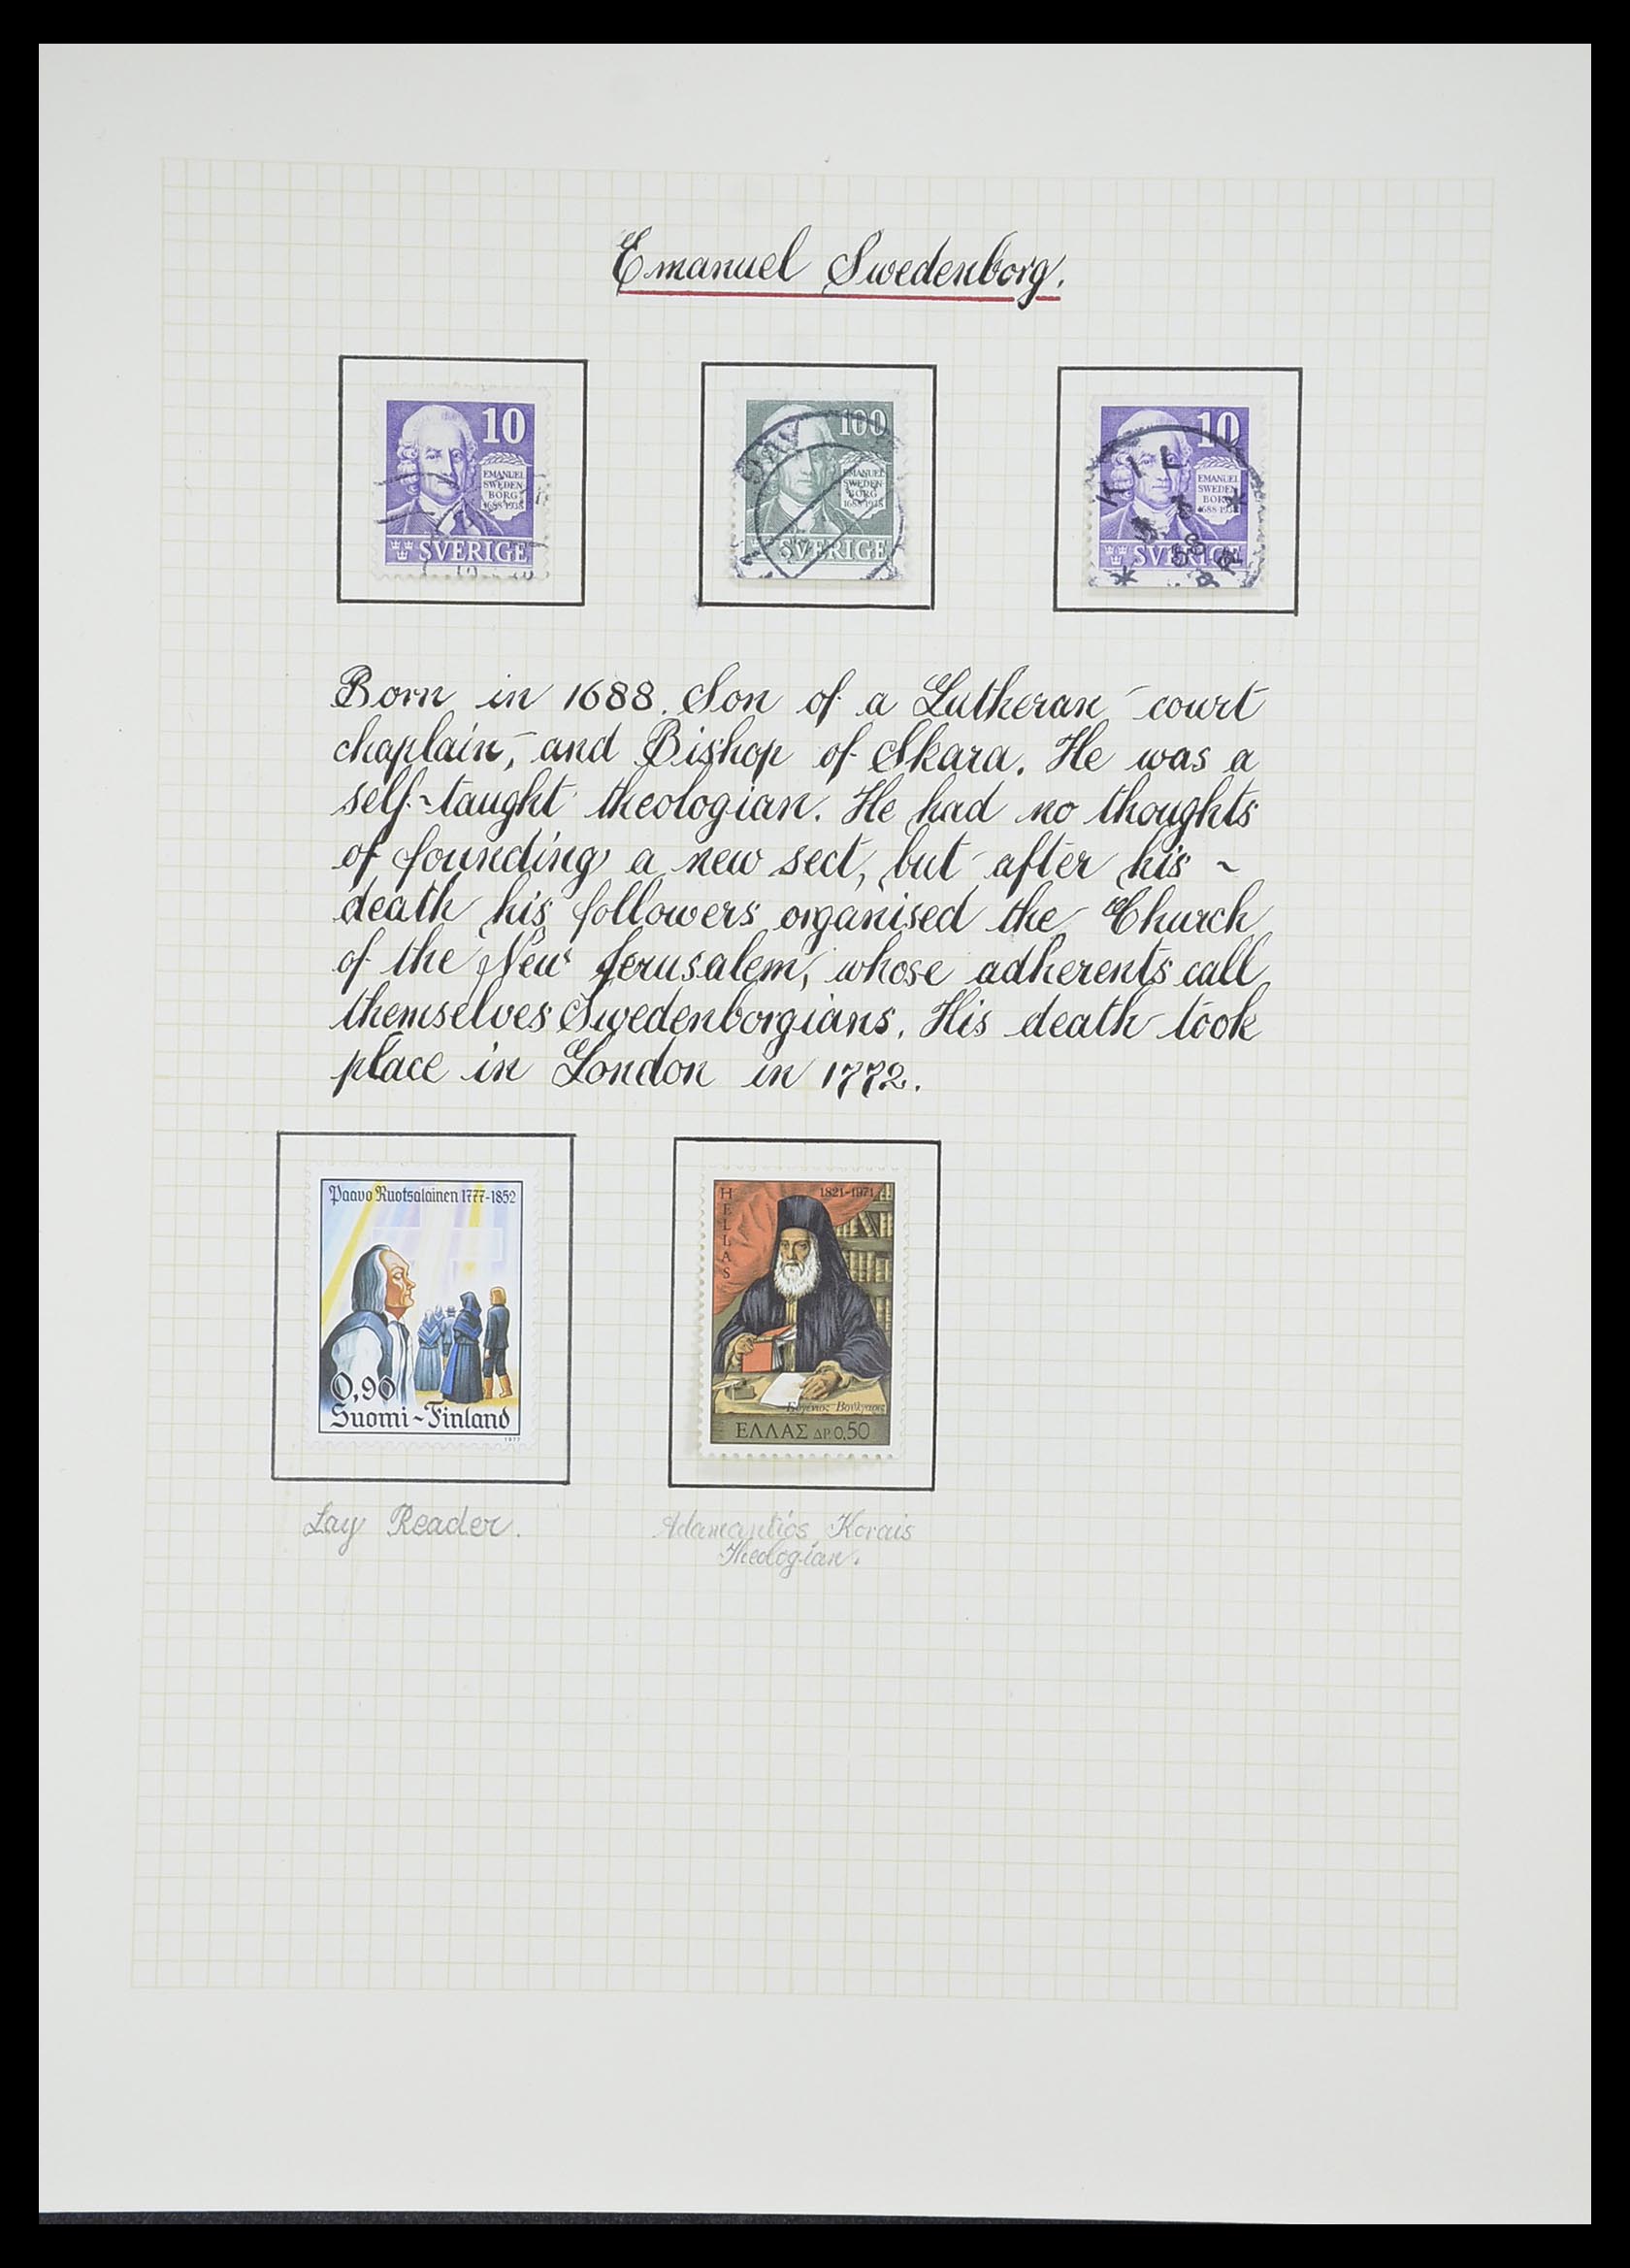 Emanuel Swedenborg.
10
EMANUEL
SWEDEN-
BORG
1688 1938
SVERIGE
100
EMANUEL
SWEDEN
BORG
1688 1938
SVERIGE
10
EMANUEL
SWEDEN
BORG
1688 1938
SVERIGE
KIL
Born in 1688. Son of a Lutheran court
chaplain, and Bishop of Skara. He was a
self-taught theologian. He had no thoughts
of founding a new sect, but after his ~
death his followers organised the Church
of the New Jerusalem, whose adherents call
themselves Swedenborgians. His death took
place in London in 1772.
Paavo Ruotsalainen 1777-1852
0,90
Suomi~Finland
1977
HELLAS
1821-1971
Εὐγένιος Βούλγαρις
ΕΛΛΑΣ ΔΡ. 0,50
Lay Reader.
Adamantios Korais
Theologian.